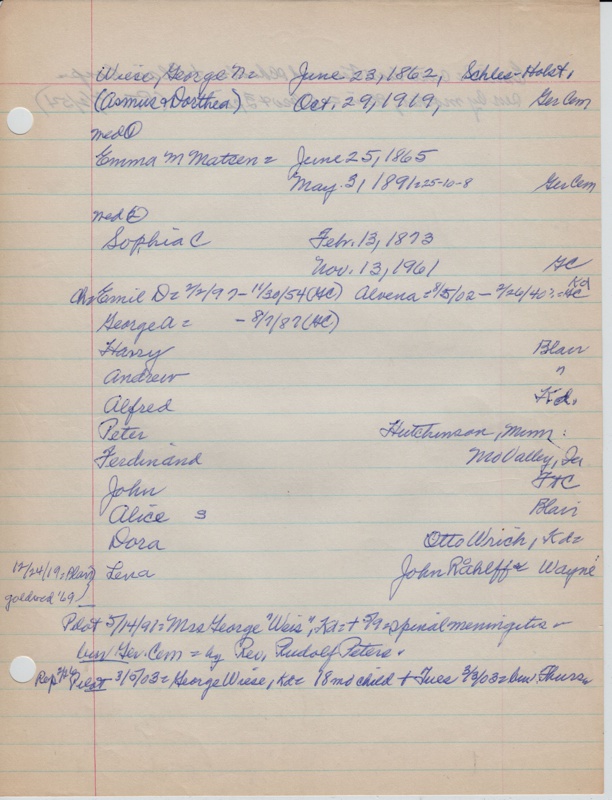 Wiese, George N = June 23, 1862, Schles-Holst,
(Asmus & Dorthea) Oct. 29, 1919, GerCem
med ①
Emma M Matzen = June 25, 1865
May. 3, 1891 = 25-10-8 GerCem
med ②
Sophia C Feb. 13, 1873
Nov. 13, 1961 GC
Ch = Emil D = 2/2/97 - 11/30/54 (GC) Alvena = 8/5/02 - 2/26/40 = GC Kd
George A = - 8/7/87 (GC)
Harry Blair
Andrew "
Alfred Kd.
Peter Hutchinson, Minn.
Ferdinand Mo Valley, Ia
John FtC
Alice s Blair
Dora Otto Wrich, Kd =
12/24/19 = Blair Lena John Rahlff = Wayne
goldwed '69
Pilot 5/14/91 = Mrs George "Weis", Kd = + 5/9 = spinal meningitis =
bur Ger. Cem = by Rev. Rudolf Peters.
Rep Pilot 3/5/03 = George Wiese, Kd = 18 mo child + Tues 3/3/03 = bur. Thurs.